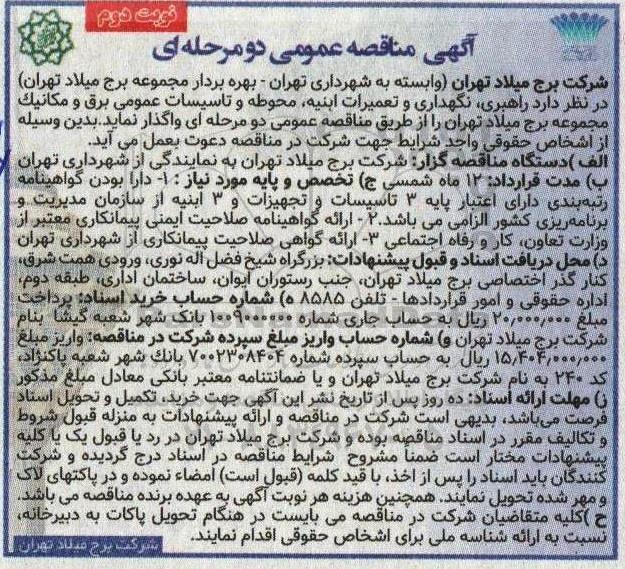 نوبت دوم
آگهی مناقصه عمومی دو مرحله ای
شرکت برج میلاد تهران (وابسته به شهرداری تهران - بهره بردار مجموعه برج میلاد تهران)
در نظر دارد راهبری، نگهداری و تعمیرات ابنیه، محوطه و تاسیسات عمومی برق و مکانیک
مجموعه برج میلاد تهران را از طریق مناقصه عمومی دو مرحله ای واگذار نماید.بدین وسیله
از اشخاص حقوقی واجد شرایط جهت شرکت در مناقصه دعوت بعمل می آید.
الف )دستگاه مناقصه گزار: شرکت برج میلاد تهران به نمایندگی از شهرداری تهران
ب) مدت قرارداد: ۱۲ ماه شمسی ج) تخصص و پایه مورد نیاز : ۱- دارا بودن گواهینامه
رتبه‌بندی دارای اعتبار پایه ۳ تاسیسات و تجهیزات و ۳ ابنیه از سازمان مدیریت و
برنامه‌ریزی کشور الزامی می باشد.۲ - ارائه گواهینامه صلاحیت ایمنی پیمانکاری معتبر از
وزارت تعاون، کار و رفاه اجتماعی ۳- ارائه گواهی صلاحیت پیمانکاری از شهرداری تهران
د) محل دریافت اسناد و قبول پیشنهادات: بزرگراه شیخ فضل اله نوری، ورودی همت شرق،
کنار گذر اختصاصی برج میلاد تهران، جنب رستوران ایوان، ساختمان اداری، طبقه دوم،
اداره حقوقی و امور قراردادها - تلفن ۸۵۸۵ ه) شماره حساب خرید اسناد: پرداخت
مبلغ ۲۰,۰۰۰,۰۰۰ ریال به حساب جاری شماره ۱۰۰۹۰۰۰۰۰۰ بانک شهر شعبه گیشا بنام
شرکت برج میلاد تهران و) شماره حساب واریز مبلغ سپرده شرکت در مناقصه: واریز مبلغ
۱۵,۴۰۴,۰۰۰,۰۰۰ ریال به حساب سپرده شماره ۷۰۰۲۳۰۸۴۰۴ بانک شهر شعبه پاکنژاد،
کد ۲۴۰ به نام شرکت برج میلاد تهران و یا ضمانتنامه معتبر بانکی معادل مبلغ مذکور
ز) مهلت ارائه اسناد: ده روز پس از تاریخ نشر این آگهی جهت خرید، تکمیل و تحویل اسناد
فرصت می‌باشد، بدیهی است شرکت در مناقصه و ارائه پیشنهادات به منزله قبول شروط
و تکالیف مقرر در اسناد مناقصه بوده و شرکت برج میلاد تهران در رد یا قبول یک یا کلیه
پیشنهادات مختار است ضمنا مشروح شرایط مناقصه در اسناد درج گردیده و شرکت
کنندگان باید اسناد را پس از اخذ، با قید کلمه (قبول است) امضاء نموده و در پاکتهای لاک
و مهر شده تحویل نمایند. همچنین هزینه هر نوبت آگهی به عهده برنده مناقصه می باشد.
ح )کلیه متقاضیان شرکت در مناقصه می بایست در هنگام تحویل پاکات به دبیرخانه،
نسبت به ارائه شناسه ملی برای اشخاص حقوقی اقدام نمایند.
شرکت برج میلاد تهران